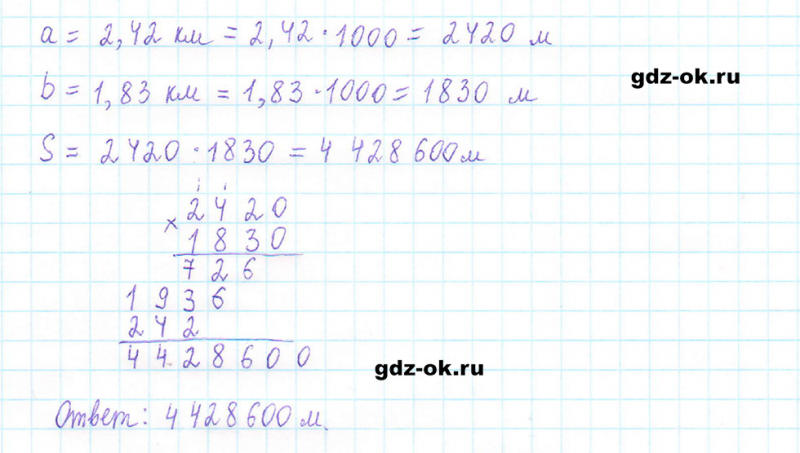 a = 2,42 км = 2,42 · 1000 = 2420 м
gdz-ok.ru
b = 1,83 км = 1,83 · 1000 = 1830 м
S = 2420 · 1830 = 4 428 600 м
1 1
× 2420
1830
726
1936
242
4428600
gdz-ok.ru
Ответ: 4 428 600 м.